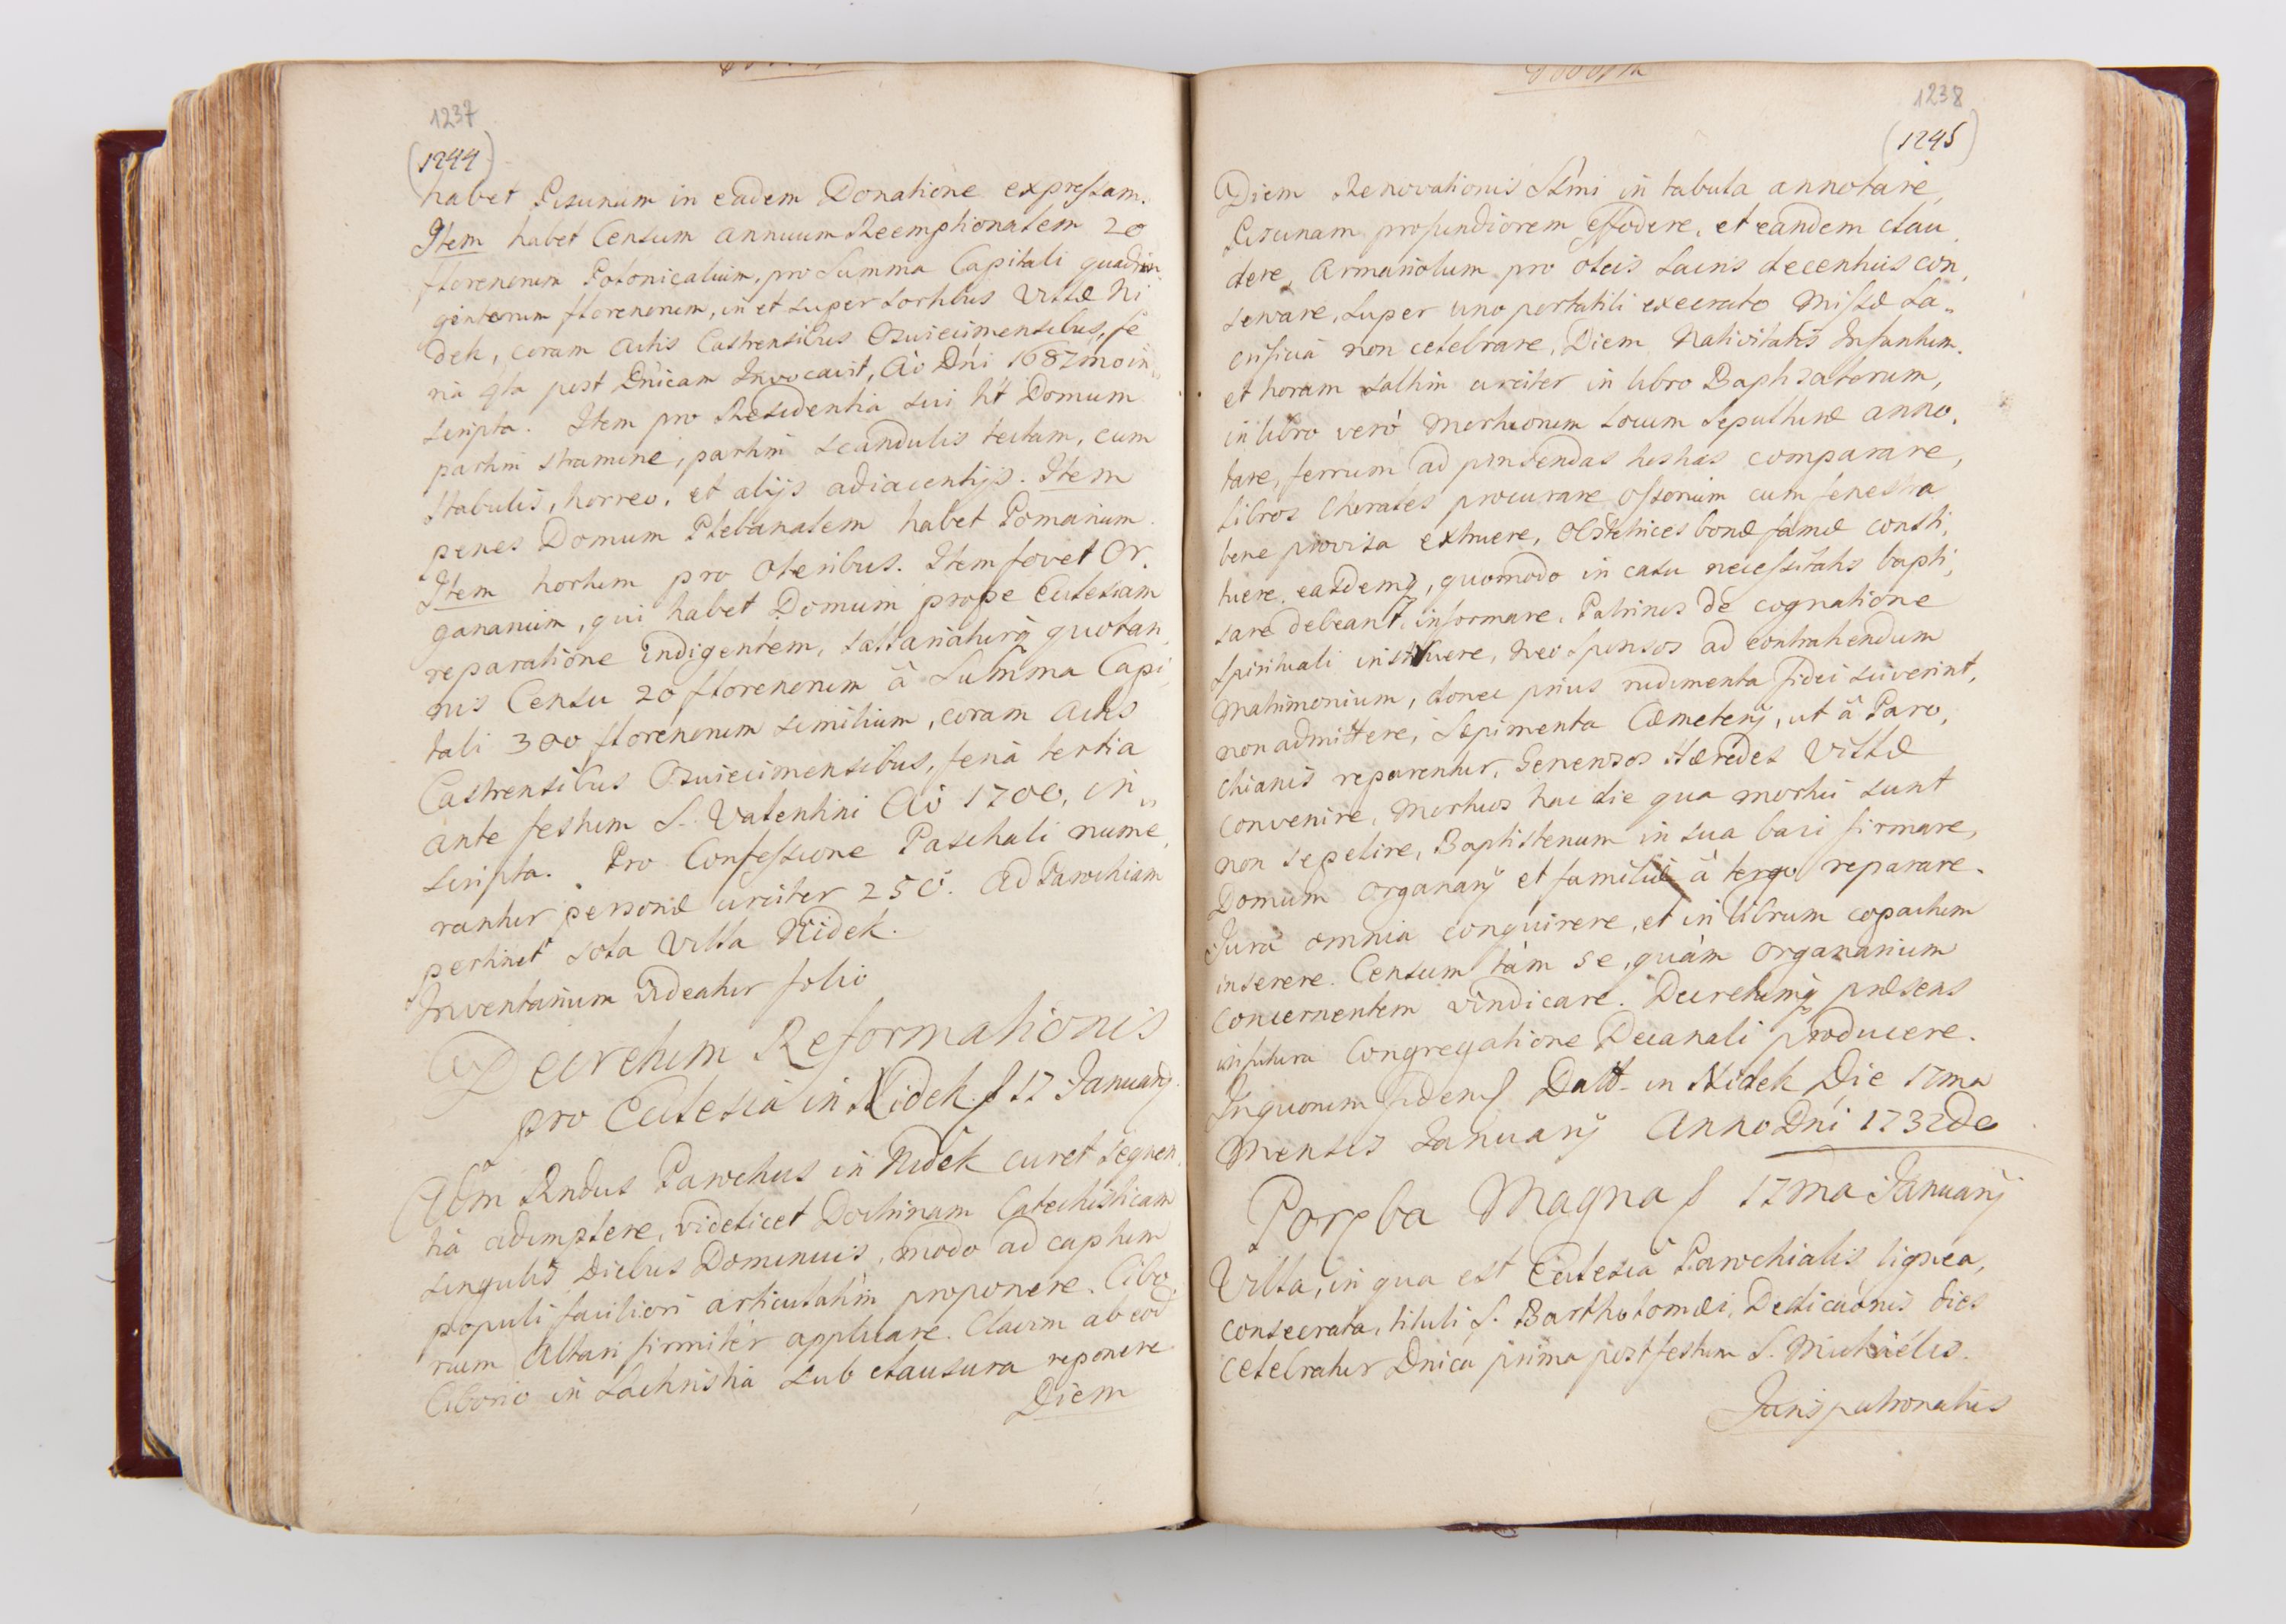 1237
(1244)
habet Piscinam in eadem Donatione expressam.
Item habet Censum annuum Reemptionalem 20
florenorum Polonicalium, pro Summa Capitali quadrin„
gentorum florenorum, in et super sortibus Villæ Ni
dek, coram Actis Castrensibus Osuiecimensibus, fe
ria 4ta post Dnicam Invocavit, Aō Dni 1687mo in„
scripta. Item pro Residentia sui ht Domum
partim stramine, partim scandulis tectam, cum
stabulis, horreo, et alijs adiacentijs. Item
penes Domum Plebanalem habet Pomarium.
Item hortum pro oleribus. Item fovet Or„
ganarium, qui habet Domum prope Ecclesiam
reparatione indigentem, sallariaturq quotan„
nis Censu 20 florenorum à Summa Capi„
tali 300 florenorum similium, coram Actis
Castrensibus Osuiecimensibus, feria tertia
ante festum S. Valentini Aō 1700, in„
scripta. Pro Confessione Paschali nume„
rantur personæ circiter 250. Ad Parochiam
pertinet sola Villa Nidek.
Inventarium videatur folio
Decretum Reformationis
pro Ecclesia in Nidek 17 Januarij.
Adm Rndus Parochus in Nidek curet sequen„
tia adimplere, videlicet Doctrinam Catechisticam
singulis Diebus Dominicis, modo ad captum
populi faciliori articulatim proponere. Cibo„
rium Altari firmiter applicare. Clavim ab eod
Ciborio in Sachristia sub clausura reponere
Diem
1238
(1245)
Diem Renovationis SSmi in tabula annotare,
Piscinam profundiorem effodere, et eandem clau„
dere, Armariolum pro oleis sacris decentius con„
servare, super uno portatili execrato Missæ Sa„
crificia non celebrare, Diem Nativitatis Infantum
et horam saltim circiter in libro Baptisatorum,
in libro verò Mortuorum locum Sepulturæ anno„
tare, ferrum ad pinsendas hostias comparare,
libros Chorales procurare Ossorium cum fenestra
bene provisa extruere, Obstetrices bonæ famæ consti„
tuere, easdemq, quomodo in casu necessitatis bapti„
sare debeant, informare, Patrinos de cognatione
Spirituali instruere, neo Sponsos ad contrahendum
Matrimonium, donec prius rudimenta fidei sciverint,
non admittere, Sepimenta Cæmeterij, ut à Paro„
chianis reparentur, Generosos Hæredes Villæ
convenire, Mortuos hac die qua mortui sunt
non sepelire, Baptisterium in sua basi firmare,
Domum Organarij et familiæ à tergo reparare.
Jura omnia conquirere, et in librum copactum
inserere. Censum tàm se, quàm Organarium
concernentem vindicare. Decretumq præsens
in futura Congregatione Decanali producere.
In quorum fidem Datt in Nidek Die 17ma
Mensis Januarij Anno Dni 1732do
Poręba Magna 17ma Januarij
Villa, in qua est Ecclesia Parochialis lignea,
consecrata, tituli S. Bartholomæi, Dedicaōnis dies
celebratur Dnica prima post festum S. Michaëlis.
Juris patronatus